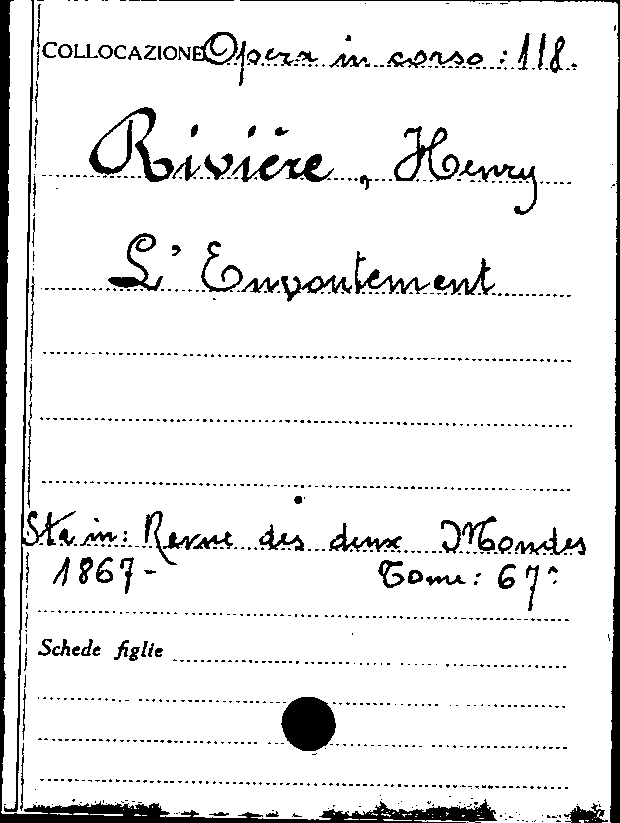 COLLOCAZIONE Opera in corso: 118.
Rivière, Henry
L' Envoutement
Sta in: Revue des deux Mondes
1867- Tome: 67°
Schede figlie